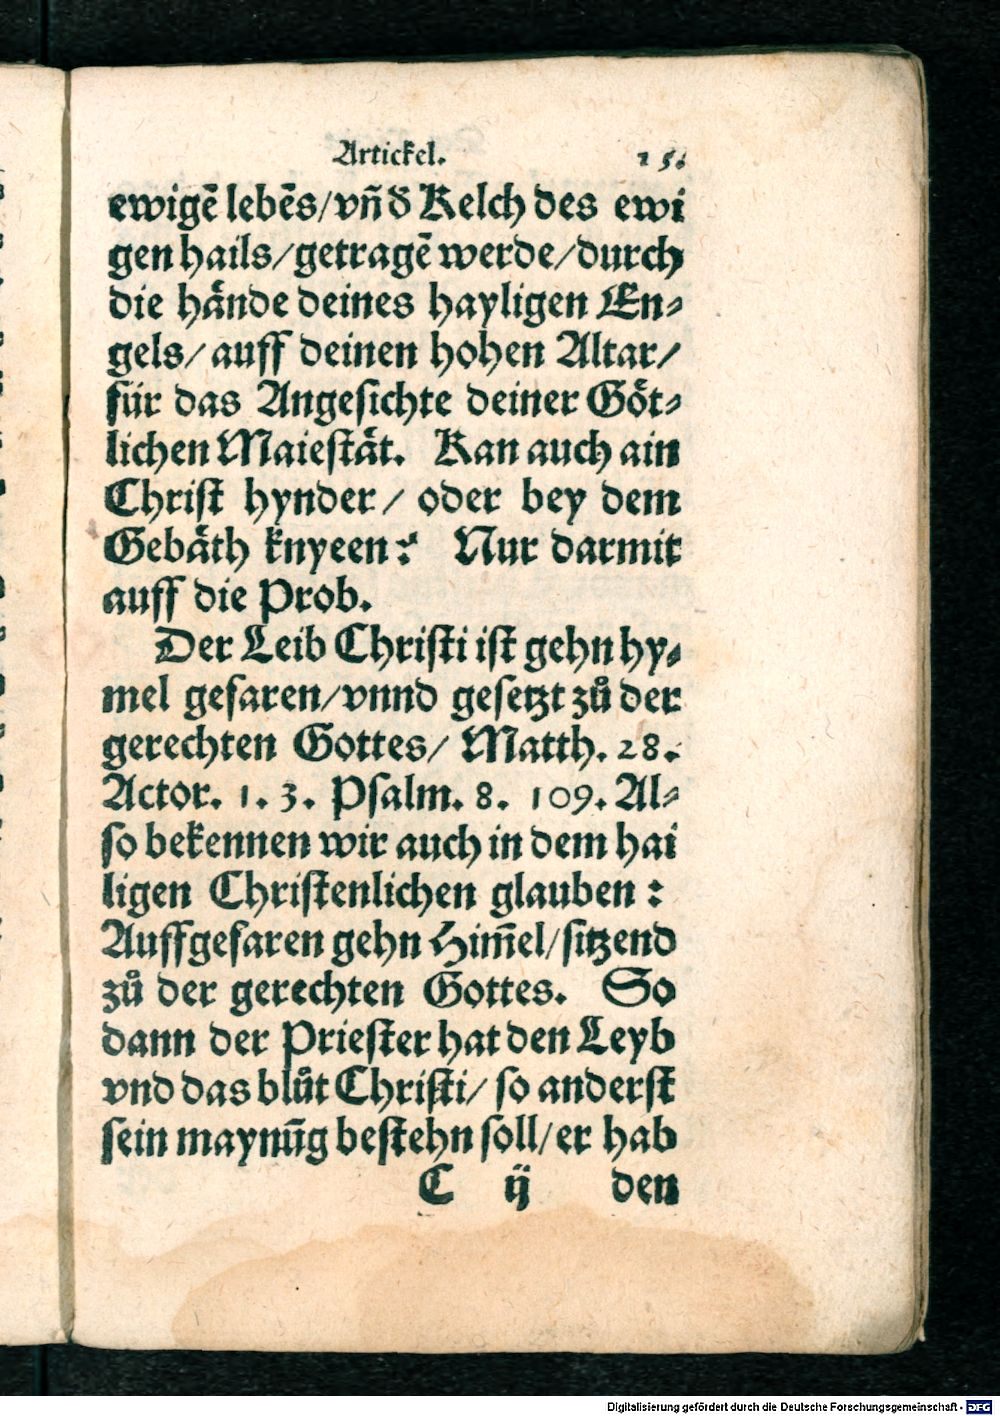 Artickel. 15.
ewigẽ lebẽs/vñ đ Kelch des ewi
gen hails/getragẽ werde/durch
die haͤnde deines hayligen En⸗
gels/auff deinen hohen Altar/
für das Angesichte deiner Goͤt⸗
lichen Maiestaͤt. Kan auch ain
Christ hynder/ oder bey dem
Gebaͤth knyeen? Nur darmit
auff die Prob.
Der Leib Christi ist gehn hy⸗
mel gefaren/vnnd gesetzt zů der
gerechten Gottes/ Matth. 28.
Actor. 1. 3. Psalm. 8. 109. Al⸗
so bekennen wir auch in dem hai
ligen Christenlichen glauben:
Auffgefaren gehn Him̃el/sitzend
zů der gerechten Gottes. So
dann der Priester hat den Leyb
vnd das blůt Christi/ so anderst
sein maynũg bestehn soll/er hab
C ij den
Digitalisierung gefördert durch die Deutsche Forschungsgemeinschaft - DFG